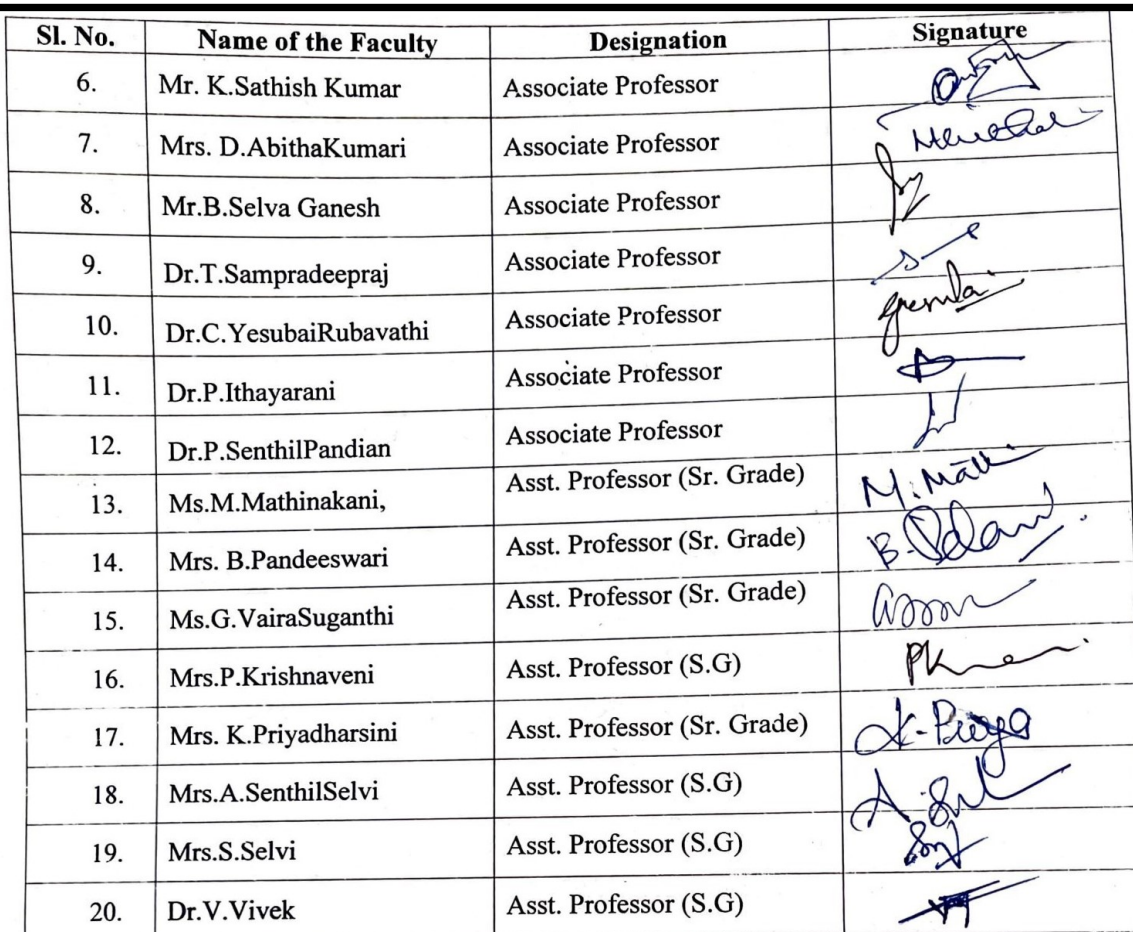 Sl. No. Name of the Faculty Designation Signature
6. Mr. K.Sathish Kumar Associate Professor
7. Mrs. D.AbithaKumari Associate Professor
8. Mr.B.Selva Ganesh Associate Professor
9. Dr.T.Sampradeepraj Associate Professor
10. Dr.C.YesubaiRubavathi Associate Professor
11. Dr.P.Ithayarani Associate Professor
12. Dr.P.SenthilPandian Associate Professor
13. Ms.M.Mathinakani, Asst. Professor (Sr. Grade)
14. Mrs. B.Pandeeswari Asst. Professor (Sr. Grade)
15. Ms.G.VairaSuganthi Asst. Professor (Sr. Grade)
16. Mrs.P.Krishnaveni Asst. Professor (S.G)
17. Mrs. K.Priyadharsini Asst. Professor (Sr. Grade) K-Priya
18. Mrs.A.SenthilSelvi Asst. Professor (S.G)
19. Mrs.S.Selvi Asst. Professor (S.G)
20. Dr.V.Vivek Asst. Professor (S.G)